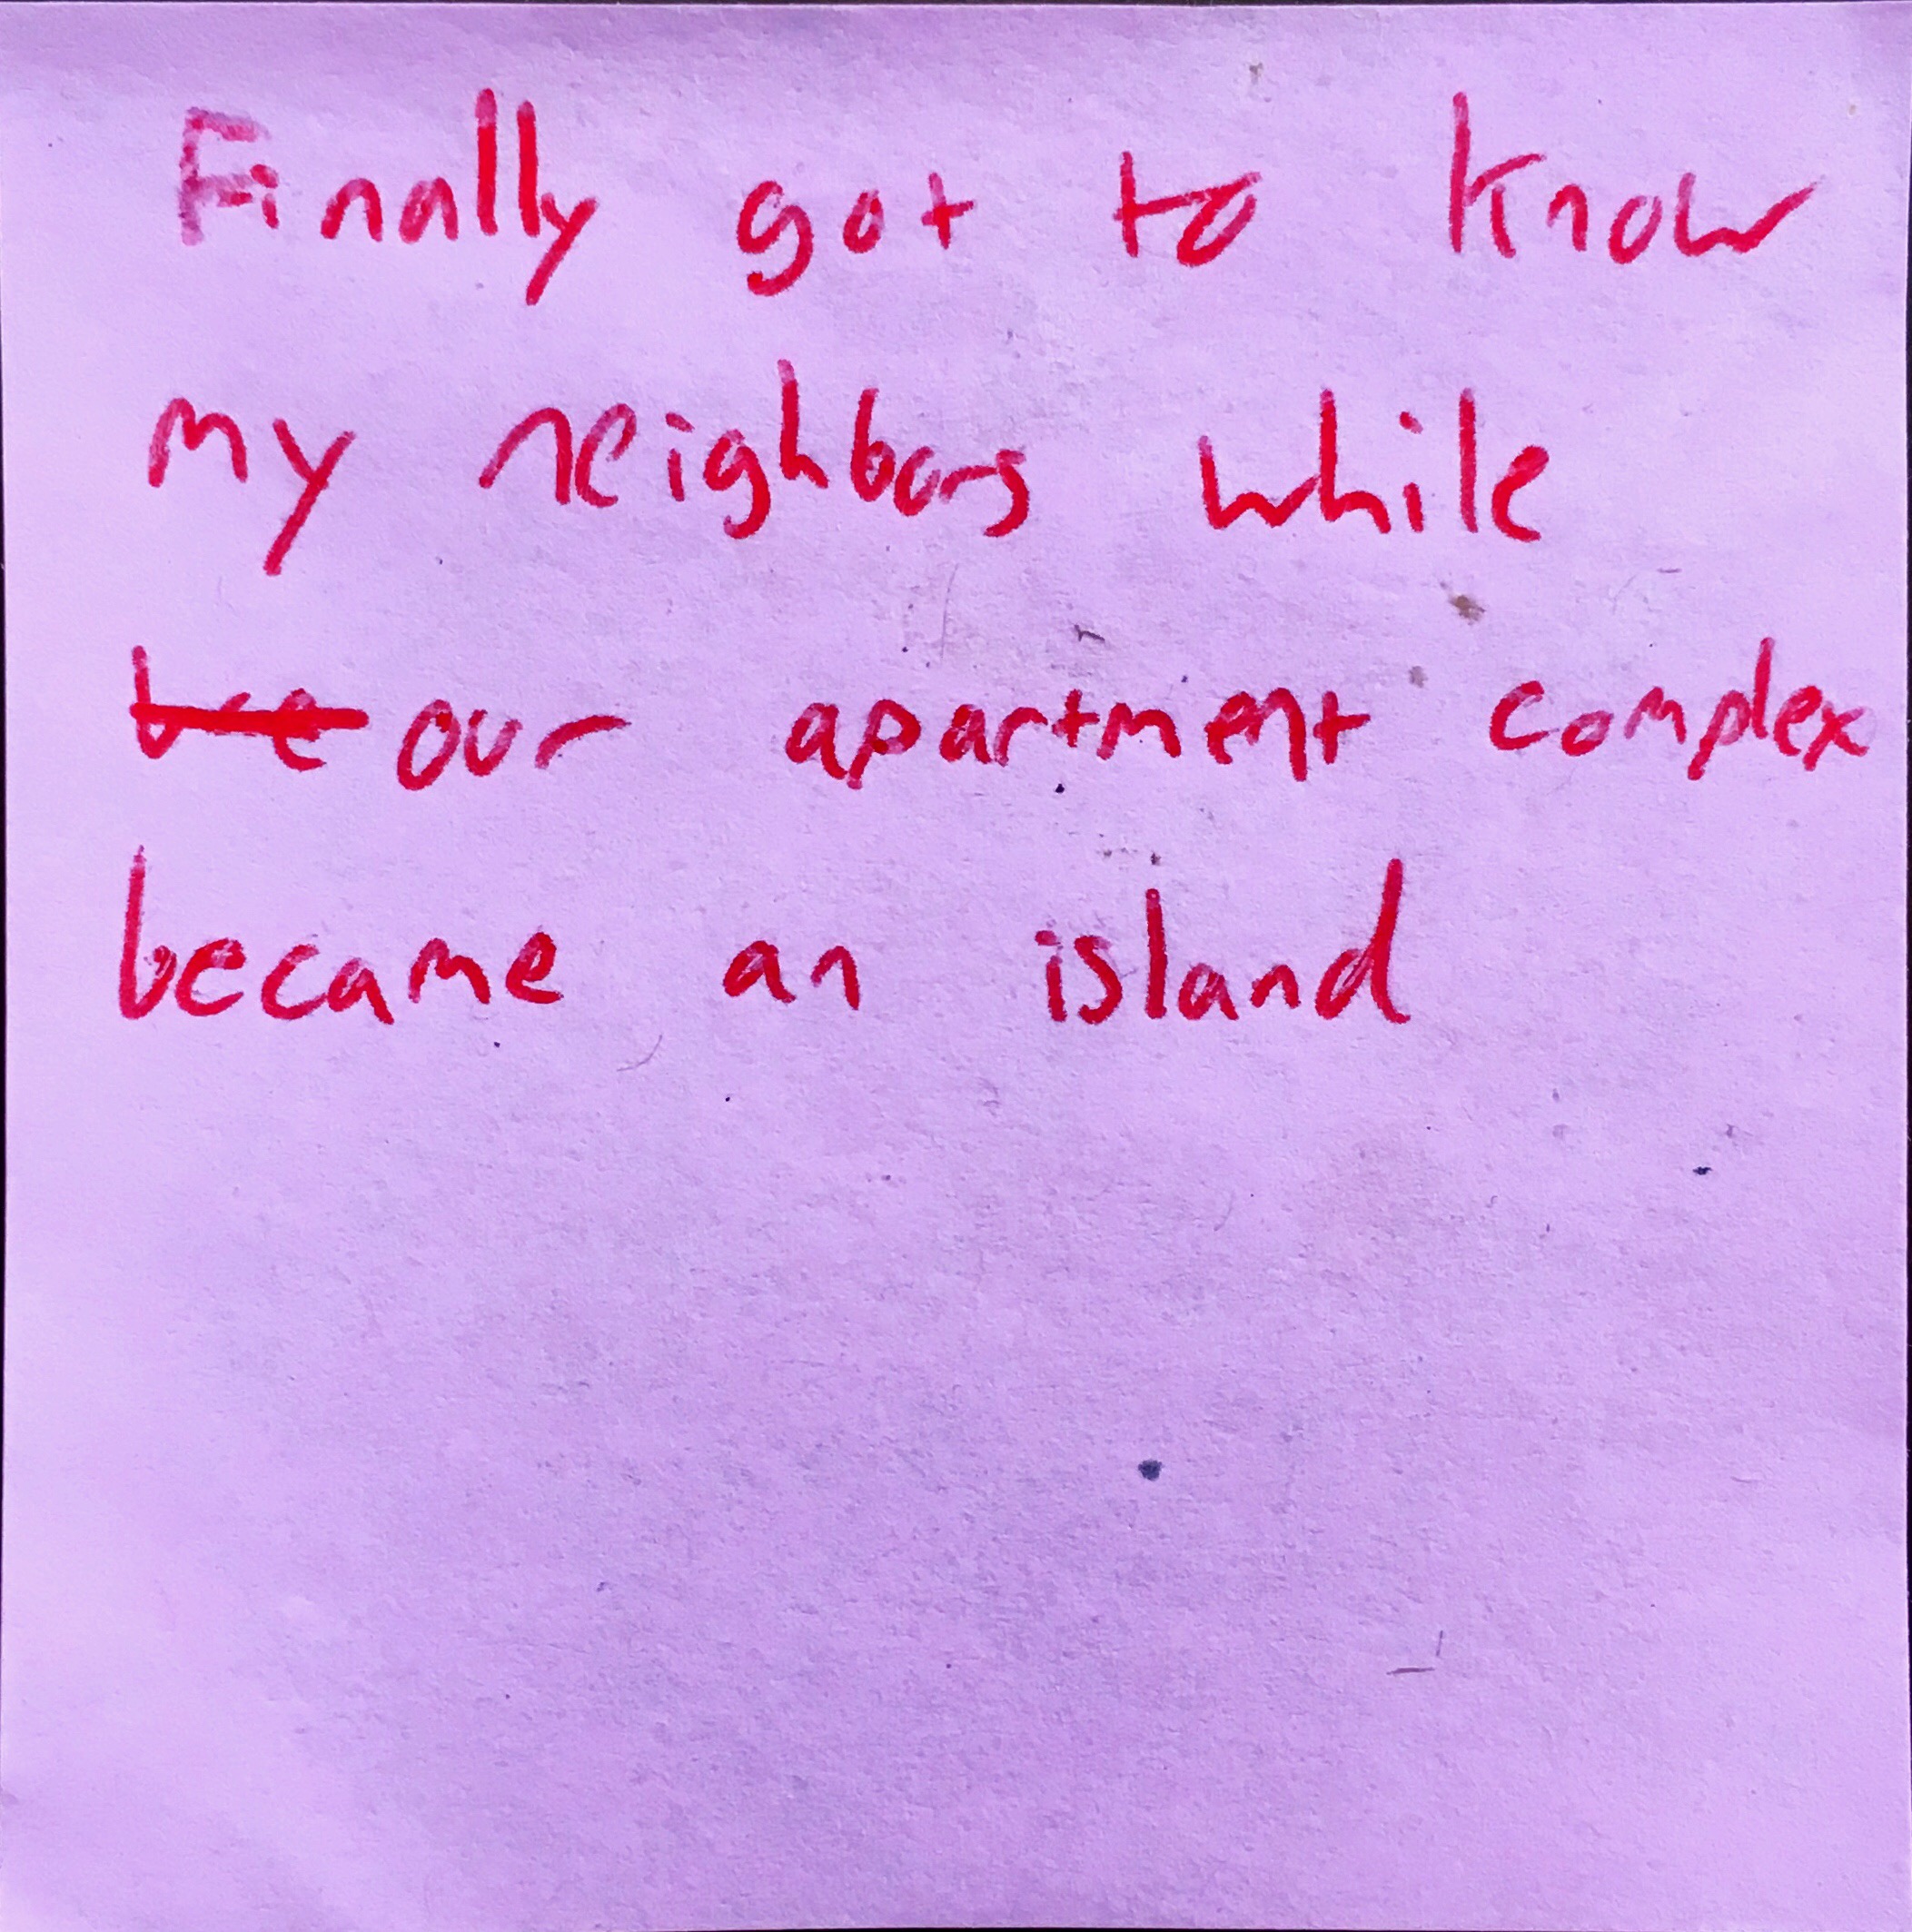 Finally got to know
my neighbors while
our apartment complex
became an island